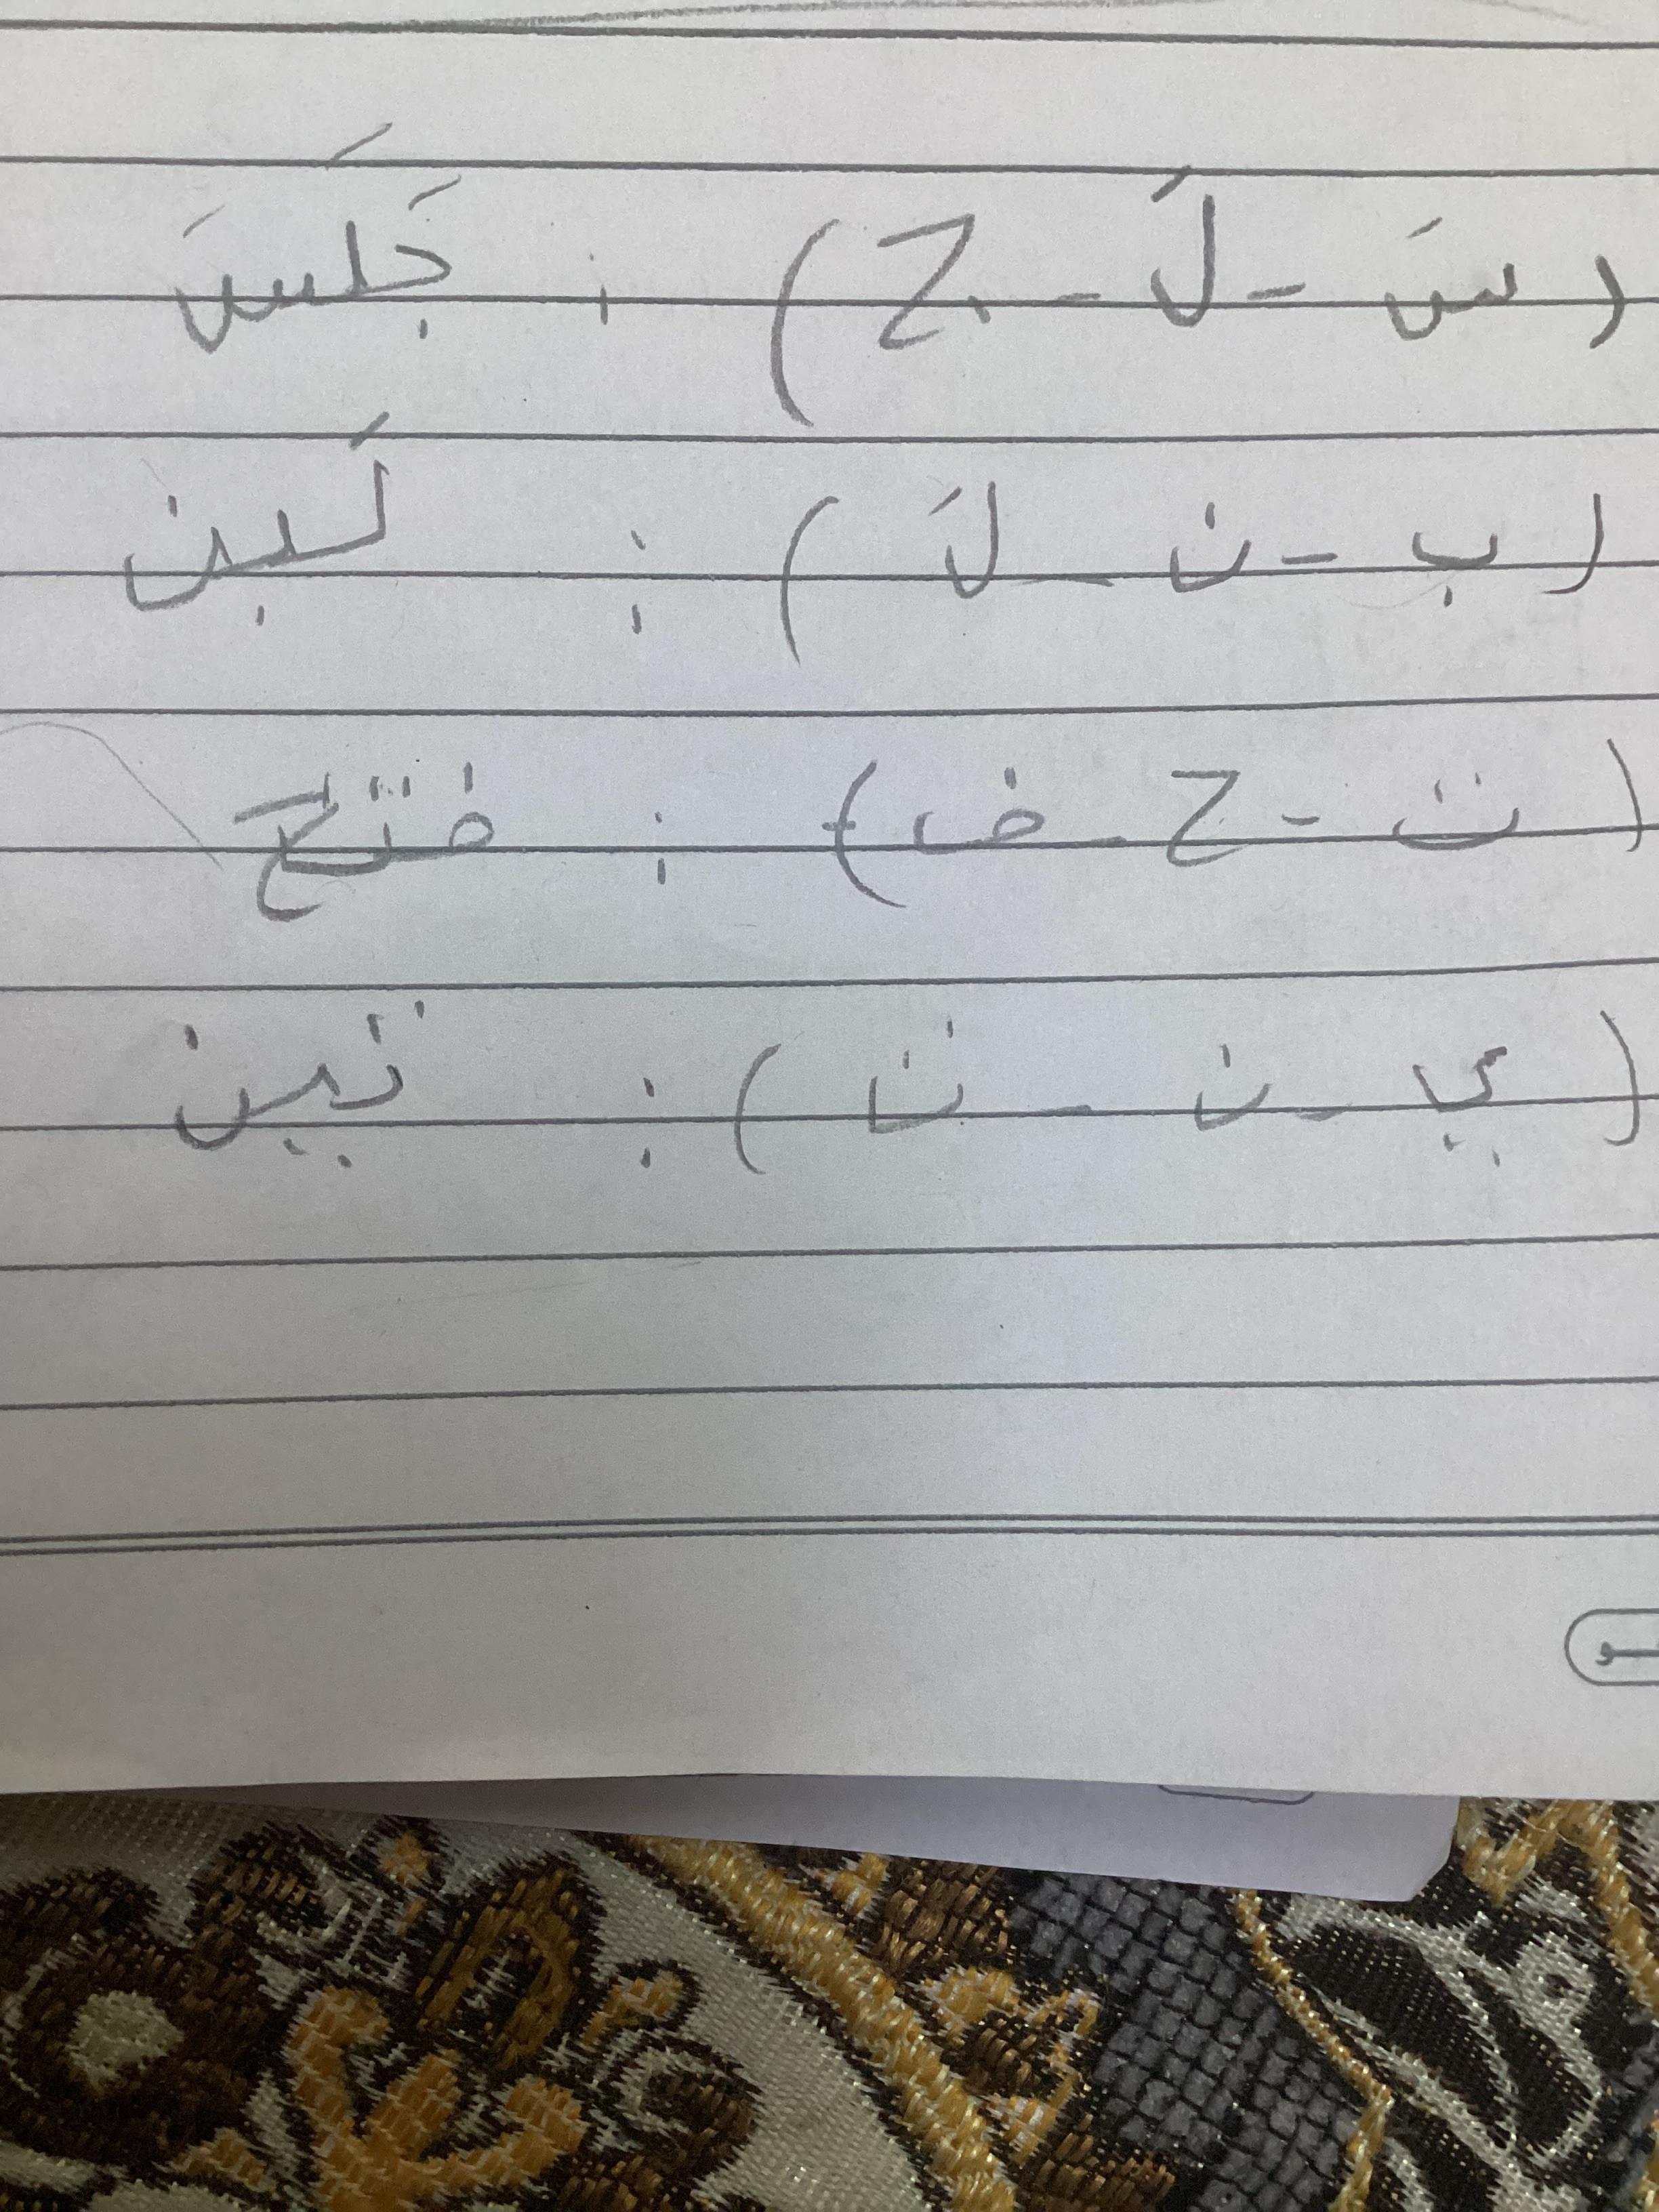 (سَ - لَ - ج) : جَلَسَ
(ب - ن - لَ) : لَبن
(ت - ح - ف) : فتح
(ي - ن - ت) : تين